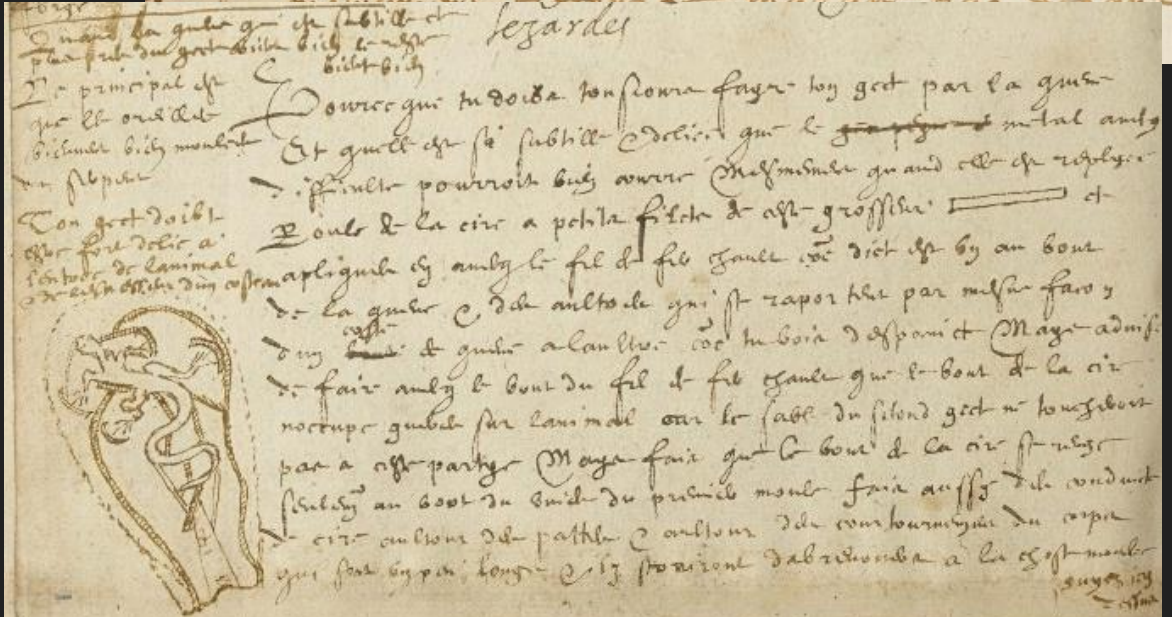 forge
Quand la queue qui est subtille et
plus pres du gect vient bien le reste
vient bien
Le principal est
que les oreilles
viennent bien moulees
au serpent
Ton gect doibt
estre fort delie a
lentode de lanimal
& de lespesseur dun costeau
lezardes
Pourceque tu doibs tousjours fayre ton gect par la queue
Et quelle est si subtille & deliee que le metal avecq
difficulte pourroit bien courre Mesmement quand elle est repliee
Roule de la cire a petits filets de ceste grosseur et
aplique avecq le fil de fer chault coe dict est un au bout
de la queue & qui se raportent par mesme facon
dun coste de queue a laultre coe tu vois despainct Mays advise
de faire avecq le bout du fil de fer chault que le bout de la cire
noccupe guere sur lanimal car le sable du segond gect ne toucheroit
pas a ceste partye Mays fais que le bout de la cire se renge
seulem au bout du vuide du premier moule fais aussy des conduicts
de cire aultour des pattes & aultour des contournemens du corps
qui soient un peu longs & ilz serviront dabreuvoirs a la chose moulee